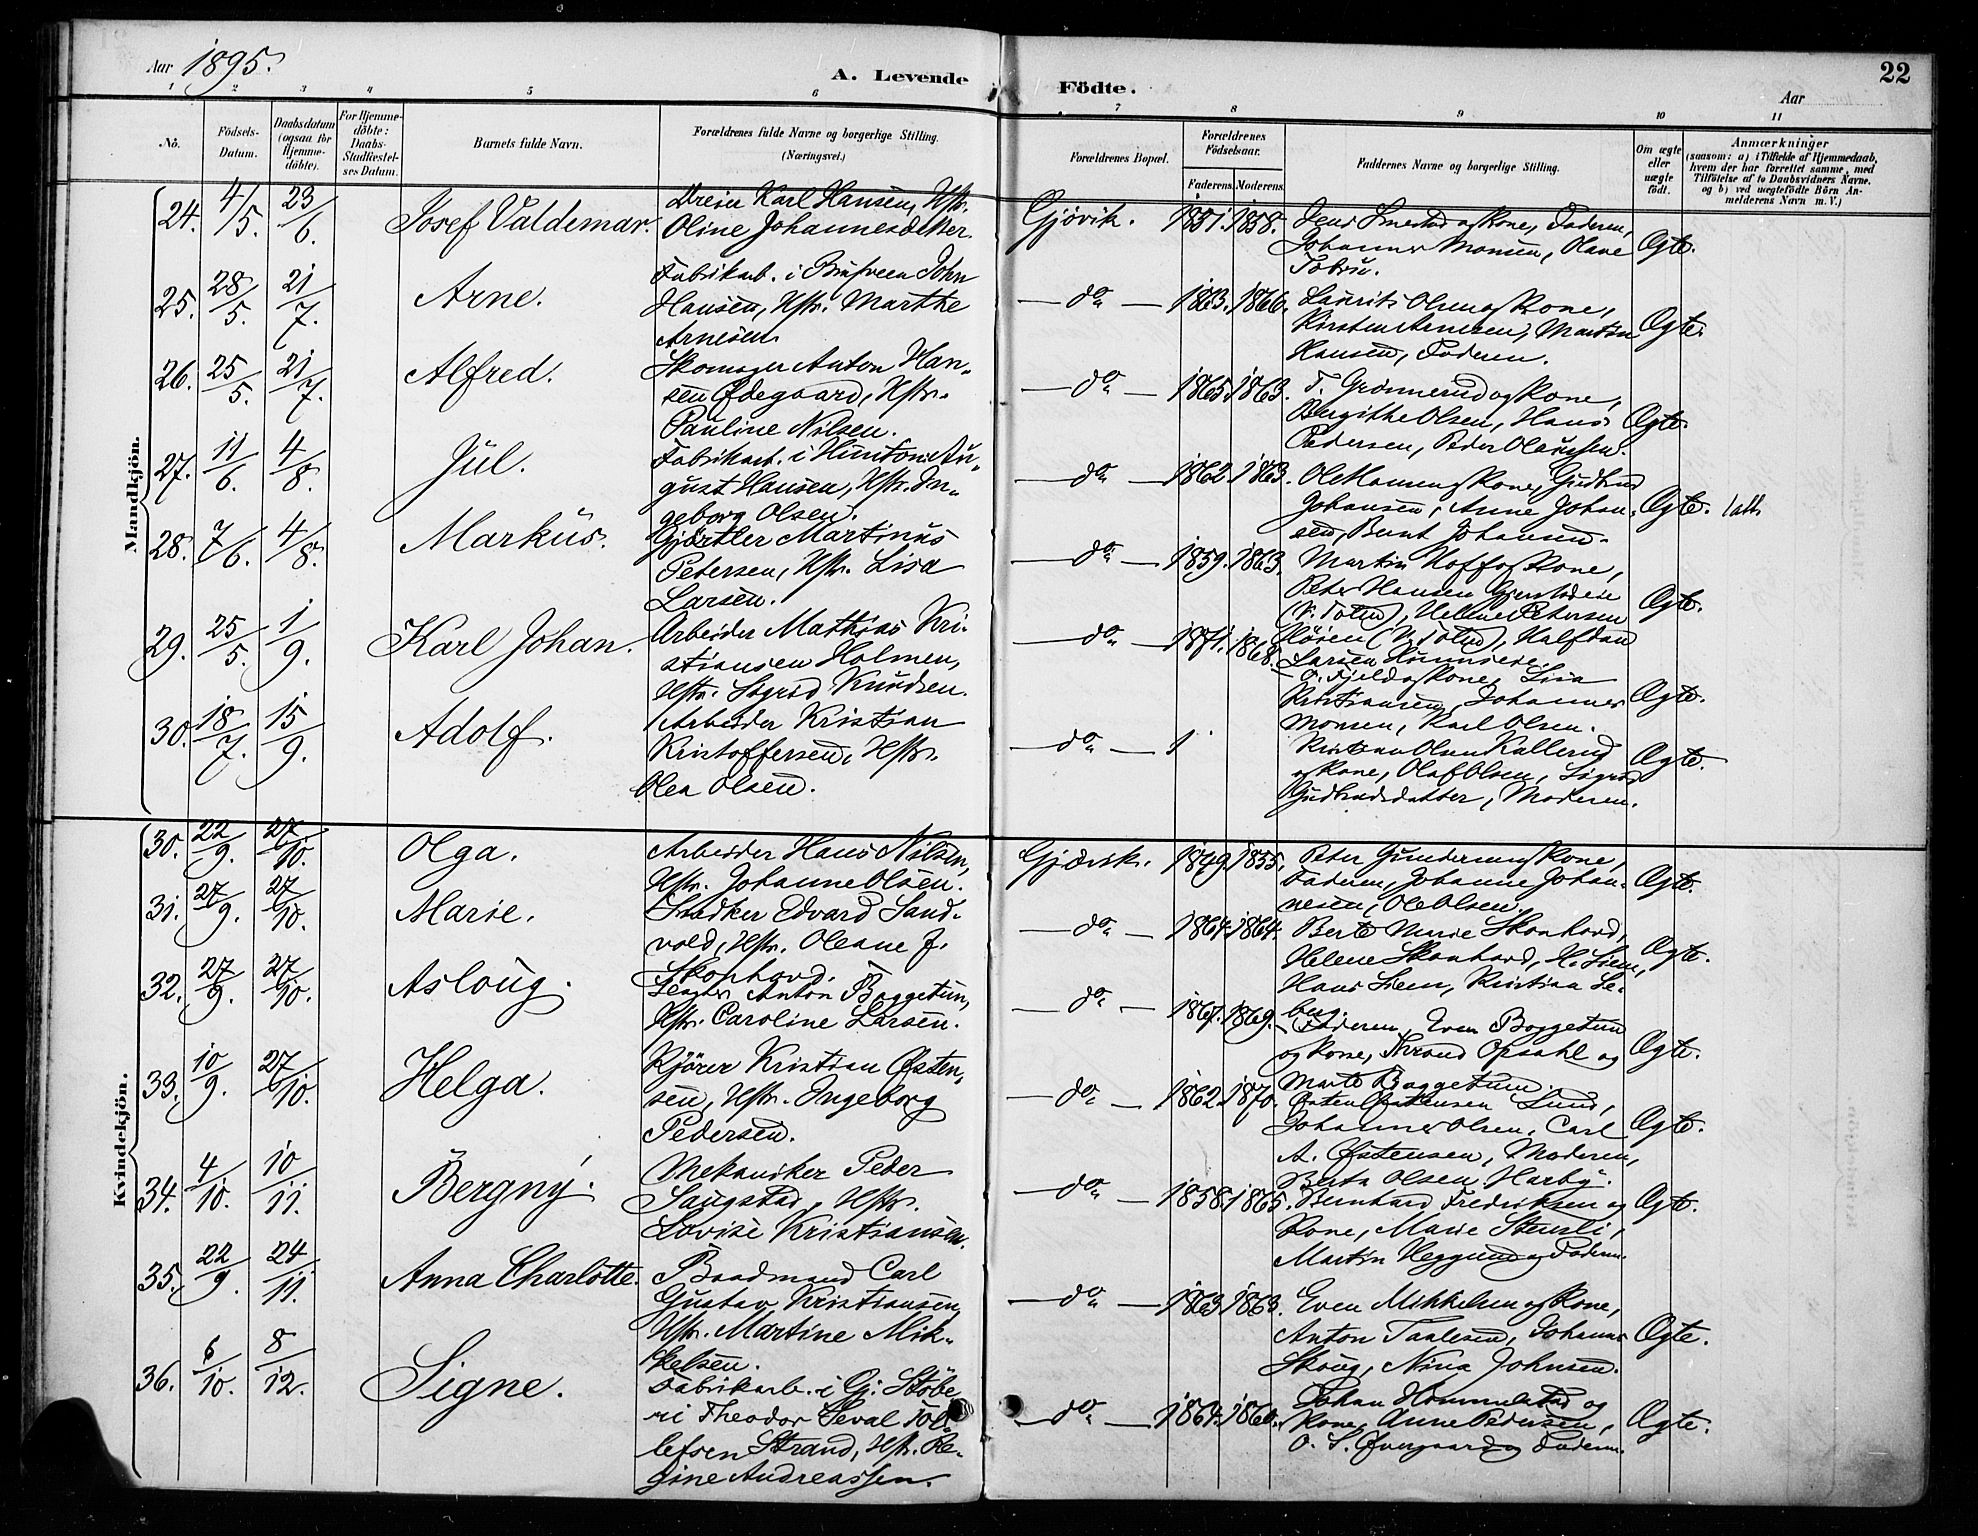 Aar 1895.
A. Levende Födte.
22
Aar
1 2 3 4 5 6 7 8 9 10 11
No.
Födsels-Datum.
Daabsdatum (ogsaa for Hjemmedöbte).
For Hjemmedöbte: Daabs-Stadfæstelses Datum.
Barnets fulde Navn.
Forældrenes fulde Navne og borgerlige Stilling.
(Næringsvei.)
Forældrenes Bopæl.
Forældrenes Födselsaar.
Faderens. Moderens.
Faddernes Navne og borgerlige Stilling.
Om ægte eller uægte födt.
Anmærkninger
(saasom: a) i Tilfælde af Hjemmedaab, hvem der har forrettet samme, med Tilföielse af to Daabsvidners Navne, og b) ved uægtefödte Börn Anmelderens Navn m. V.)
Mandkjön.
24. 4/5. 23/6. Josef Valdemar. Dreier Karl Hansen, Hstr.
Oline Johannesdtter.
Gjövik. 1851. 1858. Jens Smestad og Kone, Faderen,
Johannes Monsen, Olave
Ægte.
25. 28/5. 21/7. Arne. Fabrikarb. i Brufveen John
Hansen, Hstr. Marthe
Arnesen
do 1863. 1866. Laurits Olsen og Kone,
Kirsten Arnesen, Martin
Hansen, Faderen.
Ægte.
26. 25/5. 21/7. Alfred. Skomager Anton Han-
sen Ødegaard, Hstr.
Pauline Nilsen.
do 1865. 1863. T. Grønnerud og Kone,
Birgitthe Olsen, Hans
Pedersen, Peder Olaussen.
Ægte.
27. 11/6. 4/8. Jul. Fabrikarb. i Hunton Au-
gust Hansen, Hstr. In-
geborg Olsen.
do 1862. 1863. Ole Hansen og Kone, Gudbrand
Johansen, Anne Johan-
sen, Bernt Johansen.
Ægte.
28. 7/6. 4/8. Markus. Gjørtler Martinus
Petersen, Hstr. Lisa
Larsen.
do 1859. 1863. Martin Hoff og Kone,
Peter Hansen
(V. Toten), Helene Petersen
(V. Toten), Halfdan
Larsen
Ægte.
29. 25/5. 1/9. Karl Johan. Arbeider Mathias Kri-
stiansen Holmen,
Hstr. Sigrid Knudsen.
do 1871. 1868. O. Fjeld og Kone, Lisa
Kristiansen, Johannes
Monsen, Karl Olsen.
Ægte.
30. 18/7. 15/9. Adolf. Arbeider Kristian
Kristoffersen, Hstr.
Olea Olsen.
do 1 Kristian Olsen Kallerud
og Kone, Olaf Olsen, Sigrid
Gudbrandsdatter, Moderen.
Ægte.
Kvindekjön.
30. 22/9. 27/10. Olga. Arbeider Hans Nilsen,
Hstr. Johanne Olsen.
Gjøvik. 1849. 1855. Peter Gundersen og Kone,
Faderen, Johanne Johan-
nesen, Ole Olsen.
Ægte.
31. 27/9. 27/10. Marie. Snedker Edvard Sand-
vold, Hstr. Oleane J.
Skonhovd.
do 1864. 1864. Berte Marie Skonhovd,
Helene Skonhovd, H. Liem,
Hans Liem, Kristian Se-
berg.
Ægte.
32. 27/9. 27/10. Asloug. Anton Baggetun,
Hstr. Caroline Larsen.
do 1867. 1869. Faderen, Even Baggetun
og Kone, Thrond Opsahl og
Marte Baggetun.
Ægte.
33. 10/9. 27/10. Helga. Kjører Kristian Østen-
sen, Hstr. Ingeborg
Pedersen.
do 1862. 1870. Østen Østensen Lund,
Johannes Olsen, Carl
A. Østensen, Moderen,
Berta Olsen Harby.
Ægte.
34. 4/10. 10/11. Bergny. Mekaniker Peder
Saugstad, Hstr.
Lovise Kristiansen.
do 1858. 1865. Bernhard Fredriksen og
Kone, Marie Stensli,
Martin Heggund og Faderen.
Ægte.
35. 22/9. 24/11. Anna Charlotte. Baadmand Carl
Gustav Kristiansen,
Hstr. Martine Mik-
kelsen.
do 1863. 1863. Even Mikkelsen og Kone,
Anton Taalesen, Johannes
Skoug, Nina Johnsen.
Ægte.
36. 6/10. 8/12. Signe. Fabrikarb. i Gj. Støbe-
ri Theodor Seval Tol-
lefsen Strand, Hstr. Re-
gine Andreassen.
do 1864. 1860. Johan Hommelstad og
Kone, Anne Pedersen,
O. S. Øvergaard og Faderen.
Ægte.